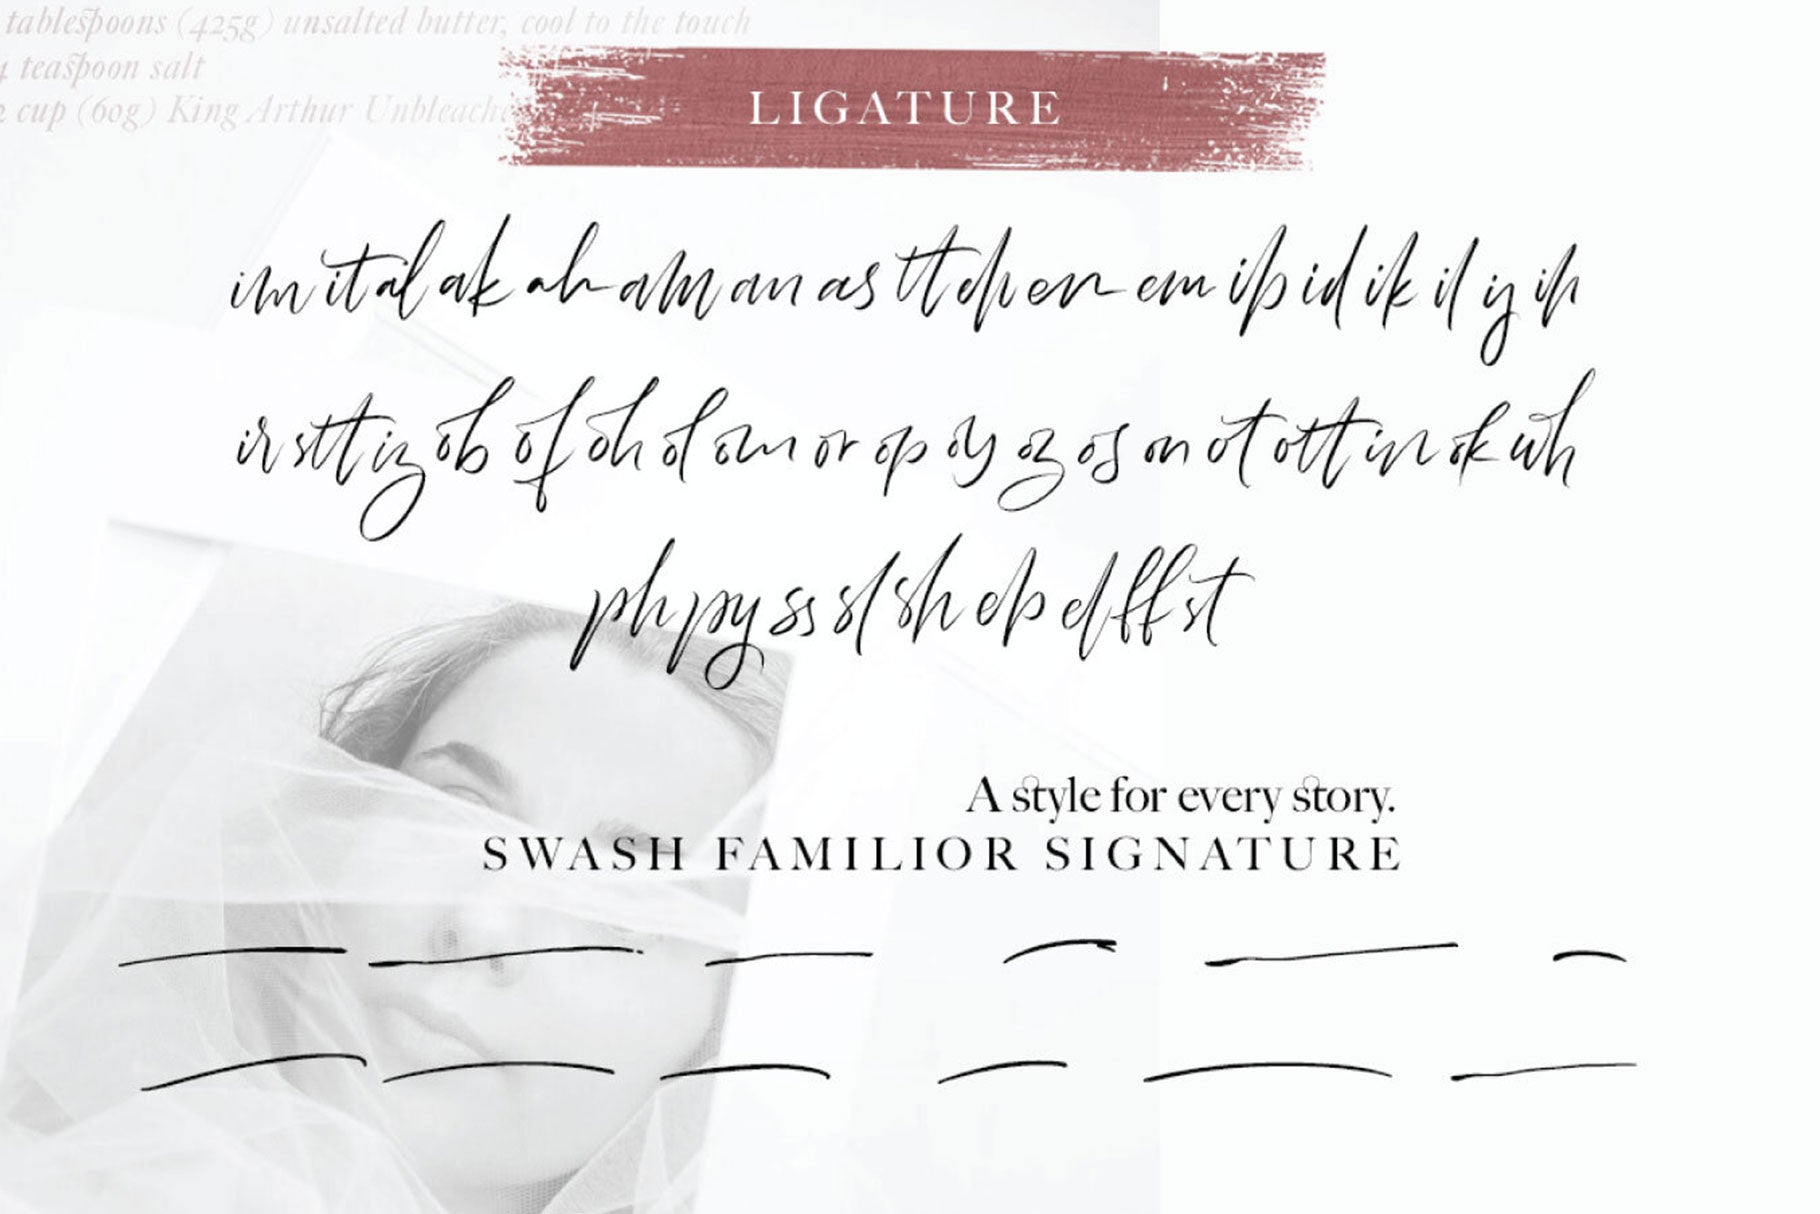 tablespoons (425g) unsalted butter, cool to the touch
4 teaspoon salt
2 cup (60g) King Arthur Unbleache
LIGATURE
im it al ak ah am an as tt eh en em ib id ik il iy ih
ir stt iz ob of oh ol om or op oy oz os on ot ott in ok wh
ph py ss sl sh eb el ff st
A style for every story.
SWASH FAMILIOR SIGNATURE